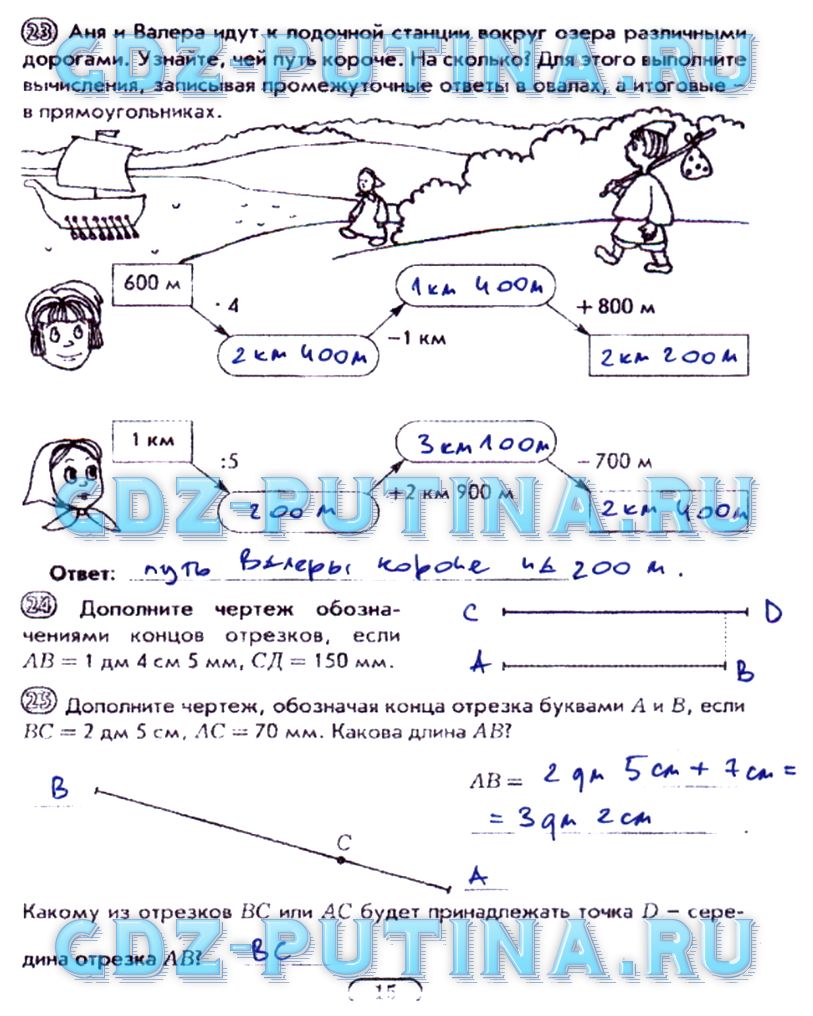 23 Аня и Валера идут к лодочной станции вокруг озера различными
дорогами. Узнайте, чей путь короче. На сколько? Для этого выполните
вычисления, записывая промежуточные ответы в овалах, а итоговые –
в прямоугольниках.
GDZ-PUTINA.RU
600 м
· 4
2 км 400 м
– 1 км
1 км 400 м
+ 800 м
2 км 200 м
1 км
:5
200 м
+2 км 900 м
3 км 100 м
– 700 м
2 км 400 м
GDZ-PUTINA.RU
Ответ: путь Валеры короче на 200 м.
24 Дополните чертеж обозна-
чениями концов отрезков, если
AB = 1 дм 4 см 5 мм, СД = 150 мм.
C D
A B
25 Дополните чертеж, обозначая конца отрезка буквами A и B, если
BC = 2 дм 5 см, AC = 70 мм. Какова длина AB?
B
C
A
AB = 2 дм 5 см + 7 см =
= 3 дм 2 см .
Какому из отрезков BC или AC будет принадлежать точка D – сере-
дина отрезка AB? BC
GDZ-PUTINA.RU
15